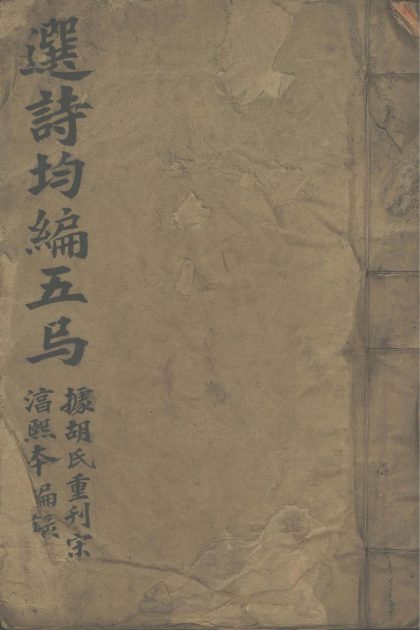 選詩均編五
據胡氏重刊宋
湻熙本編録